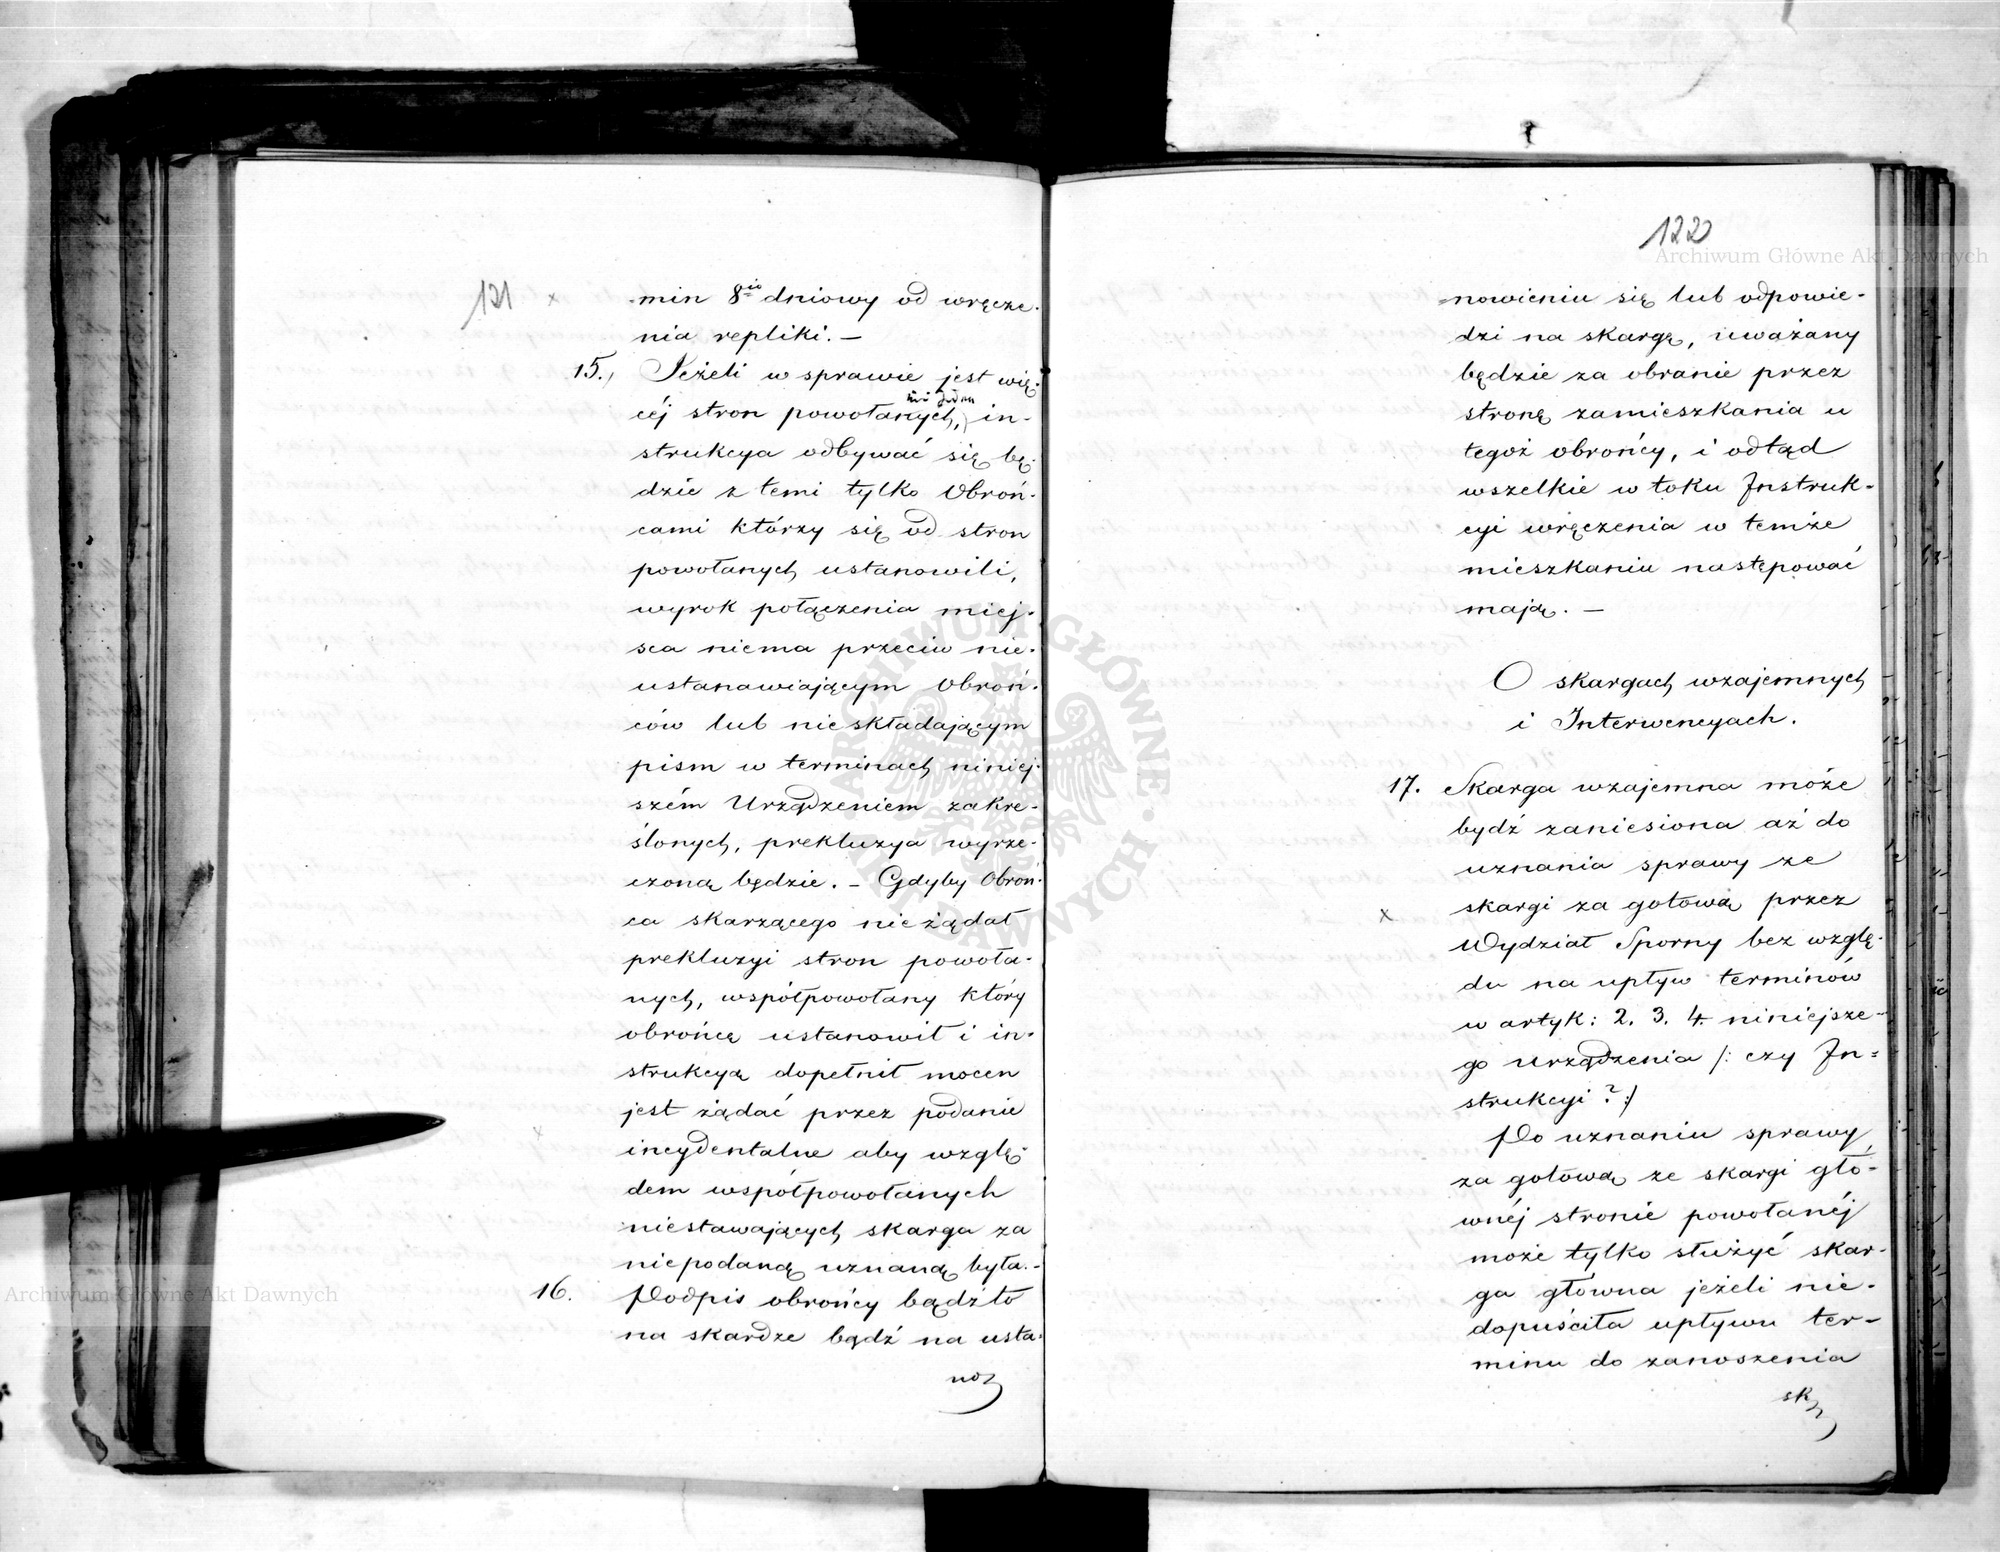 121 x
min 8io dniowy od wręcze-
nia repliki. —
15., Jeżeli w sprawie jest wię-
niż jeden
céj stron powołanych, in-
strukcya odbywać się bę-
dzie z temi tylko Obroń-
cami którzy się od stron
powołanych ustanowili,
wyrok połączenia miej-
sca niema przeciw nie-
ustanawiającym Obroń-
ców lub nieskładającym
pism w terminach niniej-
szém Urządzeniem zakre-
ślonych, prekluzya wyrze-
czoną będzie. – Gdyby Obroń-
ca skarzącego nie żądał
prekluzyi stron powoła-
nych, współpowołany który
obrońcę ustanowił i in-
strukcyą dopełnił mocen
jest żądać przez podanie
incydentalne aby wzglę-
x
dem współpowołanych
niestawających skarga za
niepodaną uznaną była. -
16. Podpis obrońcy bądź to
na skardze bądź na usta-
no
122
nowieniu się lub odpowie-
dzi na skargę, uważany
będzie za obranie przez
stronę zamieszkania u
tegoż obrońcy, i odtąd
wszelkie w toku Instruk-
cyi wręczenia w temże
mieszkaniu następować
mają. —
O skargach wzajemnych
i Interwencyach.
17. Skarga wzajemna może
bydź zaniesiona aż do
uznania sprawy ze
x skargi za gotową przez
Wydział Sporny bez wzglę-
du na upływ terminów
w artyk: 2. 3. 4. niniejsze-
go urządzenia /: czy In=
strukcyi ? :/
Po uznaniu sprawy
za gotową ze skargi głó-
wnéj stronie powołanéj
może tylko służyć skar-
ga główna jeżeli nie-
dopuściła upływu ter-
minu do zanoszenia
sk
Archiwum Główne Akt Dawnych
Archiwum Główne Akt Dawnych
ARCHIWUM GŁÓWNE AKT DAWNYCH